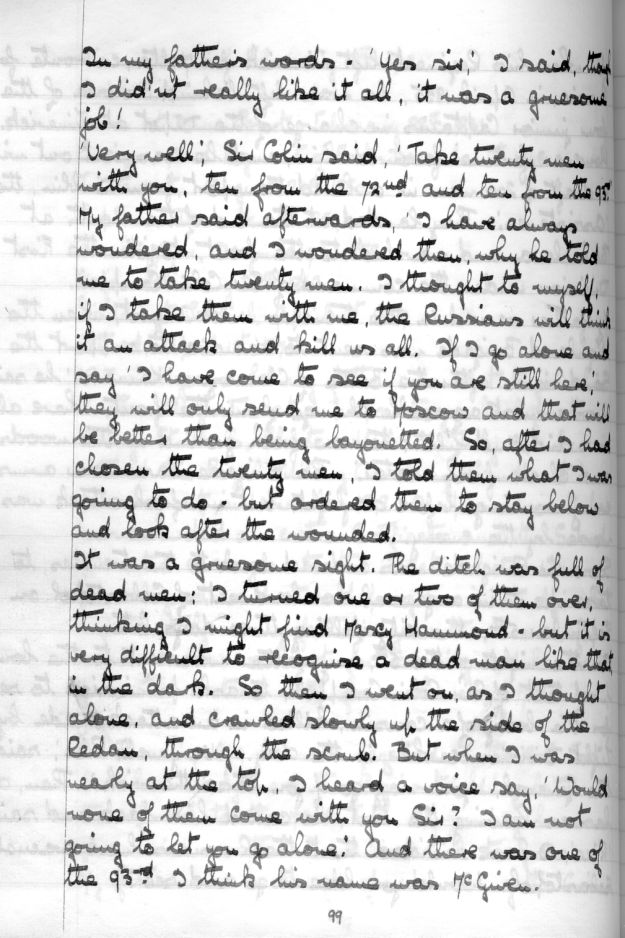 In my father's words - 'Yes sir,' I said, though
I did'nt really like it all, it was a gruesome
job!
'Very well', Sir Colin said, 'Take twenty men
with you, ten from the 72nd and ten from the 93rd'
My father said afterwards, 'I have always
wondered, and I wondered then, why he told
me to take twenty men. I thought to myself,
if I take them with me, the Russians will think
it an attack and kill us all. If I go alone and
say 'I have come to see if you are still here',
they will only send me to Moscow and that will
be better than being bayonetted. So, after I had
chosen the twenty men, I told them what I was
going to do - but ordered them to stay below
and look after the wounded.
It was a gruesome sight. The ditch was full of
dead men; I turned one or two of them over,
thinking I might find Maxy Hammond - but it is
very difficult to recognise a dead man like that
in the dark. So then I went on, as I thought
alone, and crawled slowly up the side of the
Redan, through the scrub. But when I was
nearly at the top, I heard a voice say, 'Would
none of them come with you Sir? I am not
going to let you go alone.' And there was one of
the 93rd I think his name was McGiven.
99